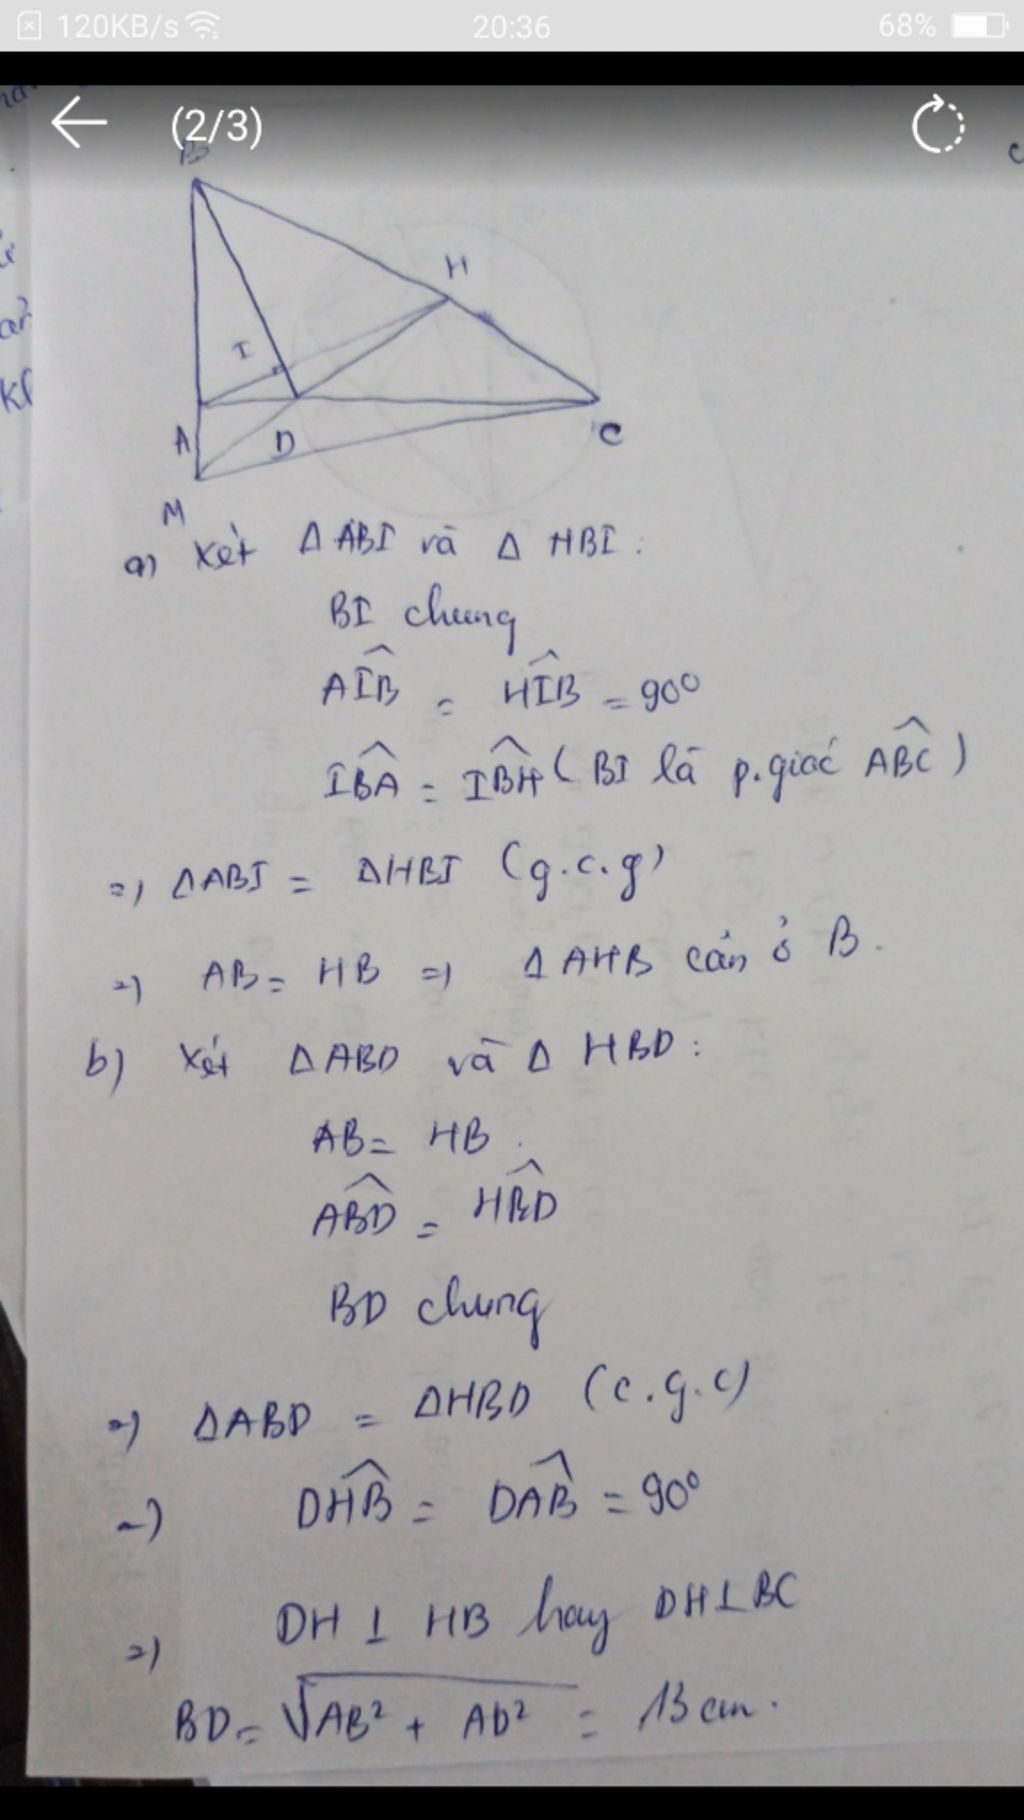 120KB/s 20:36 68%
(2/3)
B
H
I
A D C
M
a) Xét Δ ABI và Δ HBI :
BI chung
AÎB = HÎB = 90°
IB̂A = IB̂H ( BI là p.giác AB̂C )
=) ΔABI = ΔHBI (g.c.g)
=) AB = HB =) ΔAHB cân ở B.
b) Xét ΔABD và Δ HBD :
AB = HB .
AB̂D = HB̂D
BD chung
=) ΔABD = ΔHBD (c.g.c)
=) DĤB = DÂB = 90°
=) DH ⊥ HB hay DH⊥BC
BD = √AB² + AD² = 13 cm .